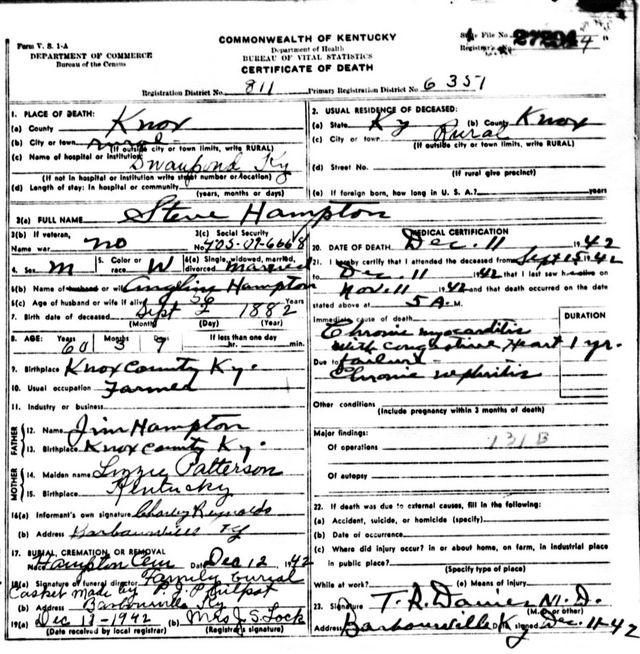 Form V. S. 1-A
DEPARTMENT OF COMMERCE
Bureau of the Census
COMMONWEALTH OF KENTUCKY
Department of Health
BUREAU OF VITAL STATISTICS
CERTIFICATE OF DEATH
State File No.
Registrar's No.
Registration District No. 811 Primary Registration District No. 6351
1. PLACE OF DEATH:
(a) County Knox
(b) City or town Rural
(If outside city or town limits, write RURAL)
(c) Name of hospital or institution: Swanpond Ky
(If not in hospital or institution write street number or location)
(d) Length of stay: In hospital or community
(years, months or days)
2. USUAL RESIDENCE OF DECEASED:
(a) State Ky (b) County Knox
(c) City or town Rural
(If outside city or town limits, write RURAL)
(d) Street No.
(If rural give precinct)
(e) If foreign born, how long in U. S. A.? years
3(a) FULL NAME Steve Hampton
3(b) If veteran, Name war no
3(c) Social Security No. 405-07-6668
4. Sex M 5. Color or race W 6(a) Single, widowed, married, divorced married
6(b) Name of husband or wife Angeline Hampton
6(c) Age of husband or wife if alive Years
7. Birth date of deceased Sept 2 1882
(Month) (Day) (Year)
8. AGE: Years 60 Months 3 Days 9 If less than one day hr. min.
9. Birthplace Knox County Ky.
10. Usual occupation Farmed
11. Industry or business
FATHER
12. Name Jim Hampton
13. Birthplace Knox County Ky.
MOTHER
14. Maiden name Lizzie Patterson
15. Birthplace Kentucky
16(a) Informant's own signature Charley Reynolds
(b) Address Barbourville Ky
17. BURIAL, CREMATION, OR REMOVAL
Hampton Cem Date Dec 12 1942
18(a) Signature of funeral director Family burial
Casket made by
(b) Address Barbourville Ky
19(a) Dec 13-1942 (b) Mrs J. S. Lock
(Date received by local registrar) (Registrar's signature)
MEDICAL CERTIFICATION
20. DATE OF DEATH Dec. 11 1942
21. I hereby certify that I attended the deceased from Sept 15 1942
to Dec. 11 1942 that I last saw h alive on
Nov. 11 1942 and that death occurred on the date
stated above at 5 A. M.
Immediate cause of death
DURATION
Chronic myocarditis
with congestive Heart 1 yr.
Due to failure
Chronic nephritis
Other conditions
(Include pregnancy within 3 months of death)
Major findings:
Of operations 131B
Of autopsy
22. If death was due to external causes, fill in the following:
(a) Accident, suicide, or homicide (specify)
(b) Date of occurrence
(c) Where did injury occur? in or about home, on farm, in industrial place
in public place?
(Specify type of place)
While at work? (e) Means of injury
23. Signature T. R. Davies M. D.
(M.D. or other)
Address Barbourville Ky Date signed Dec 11-42